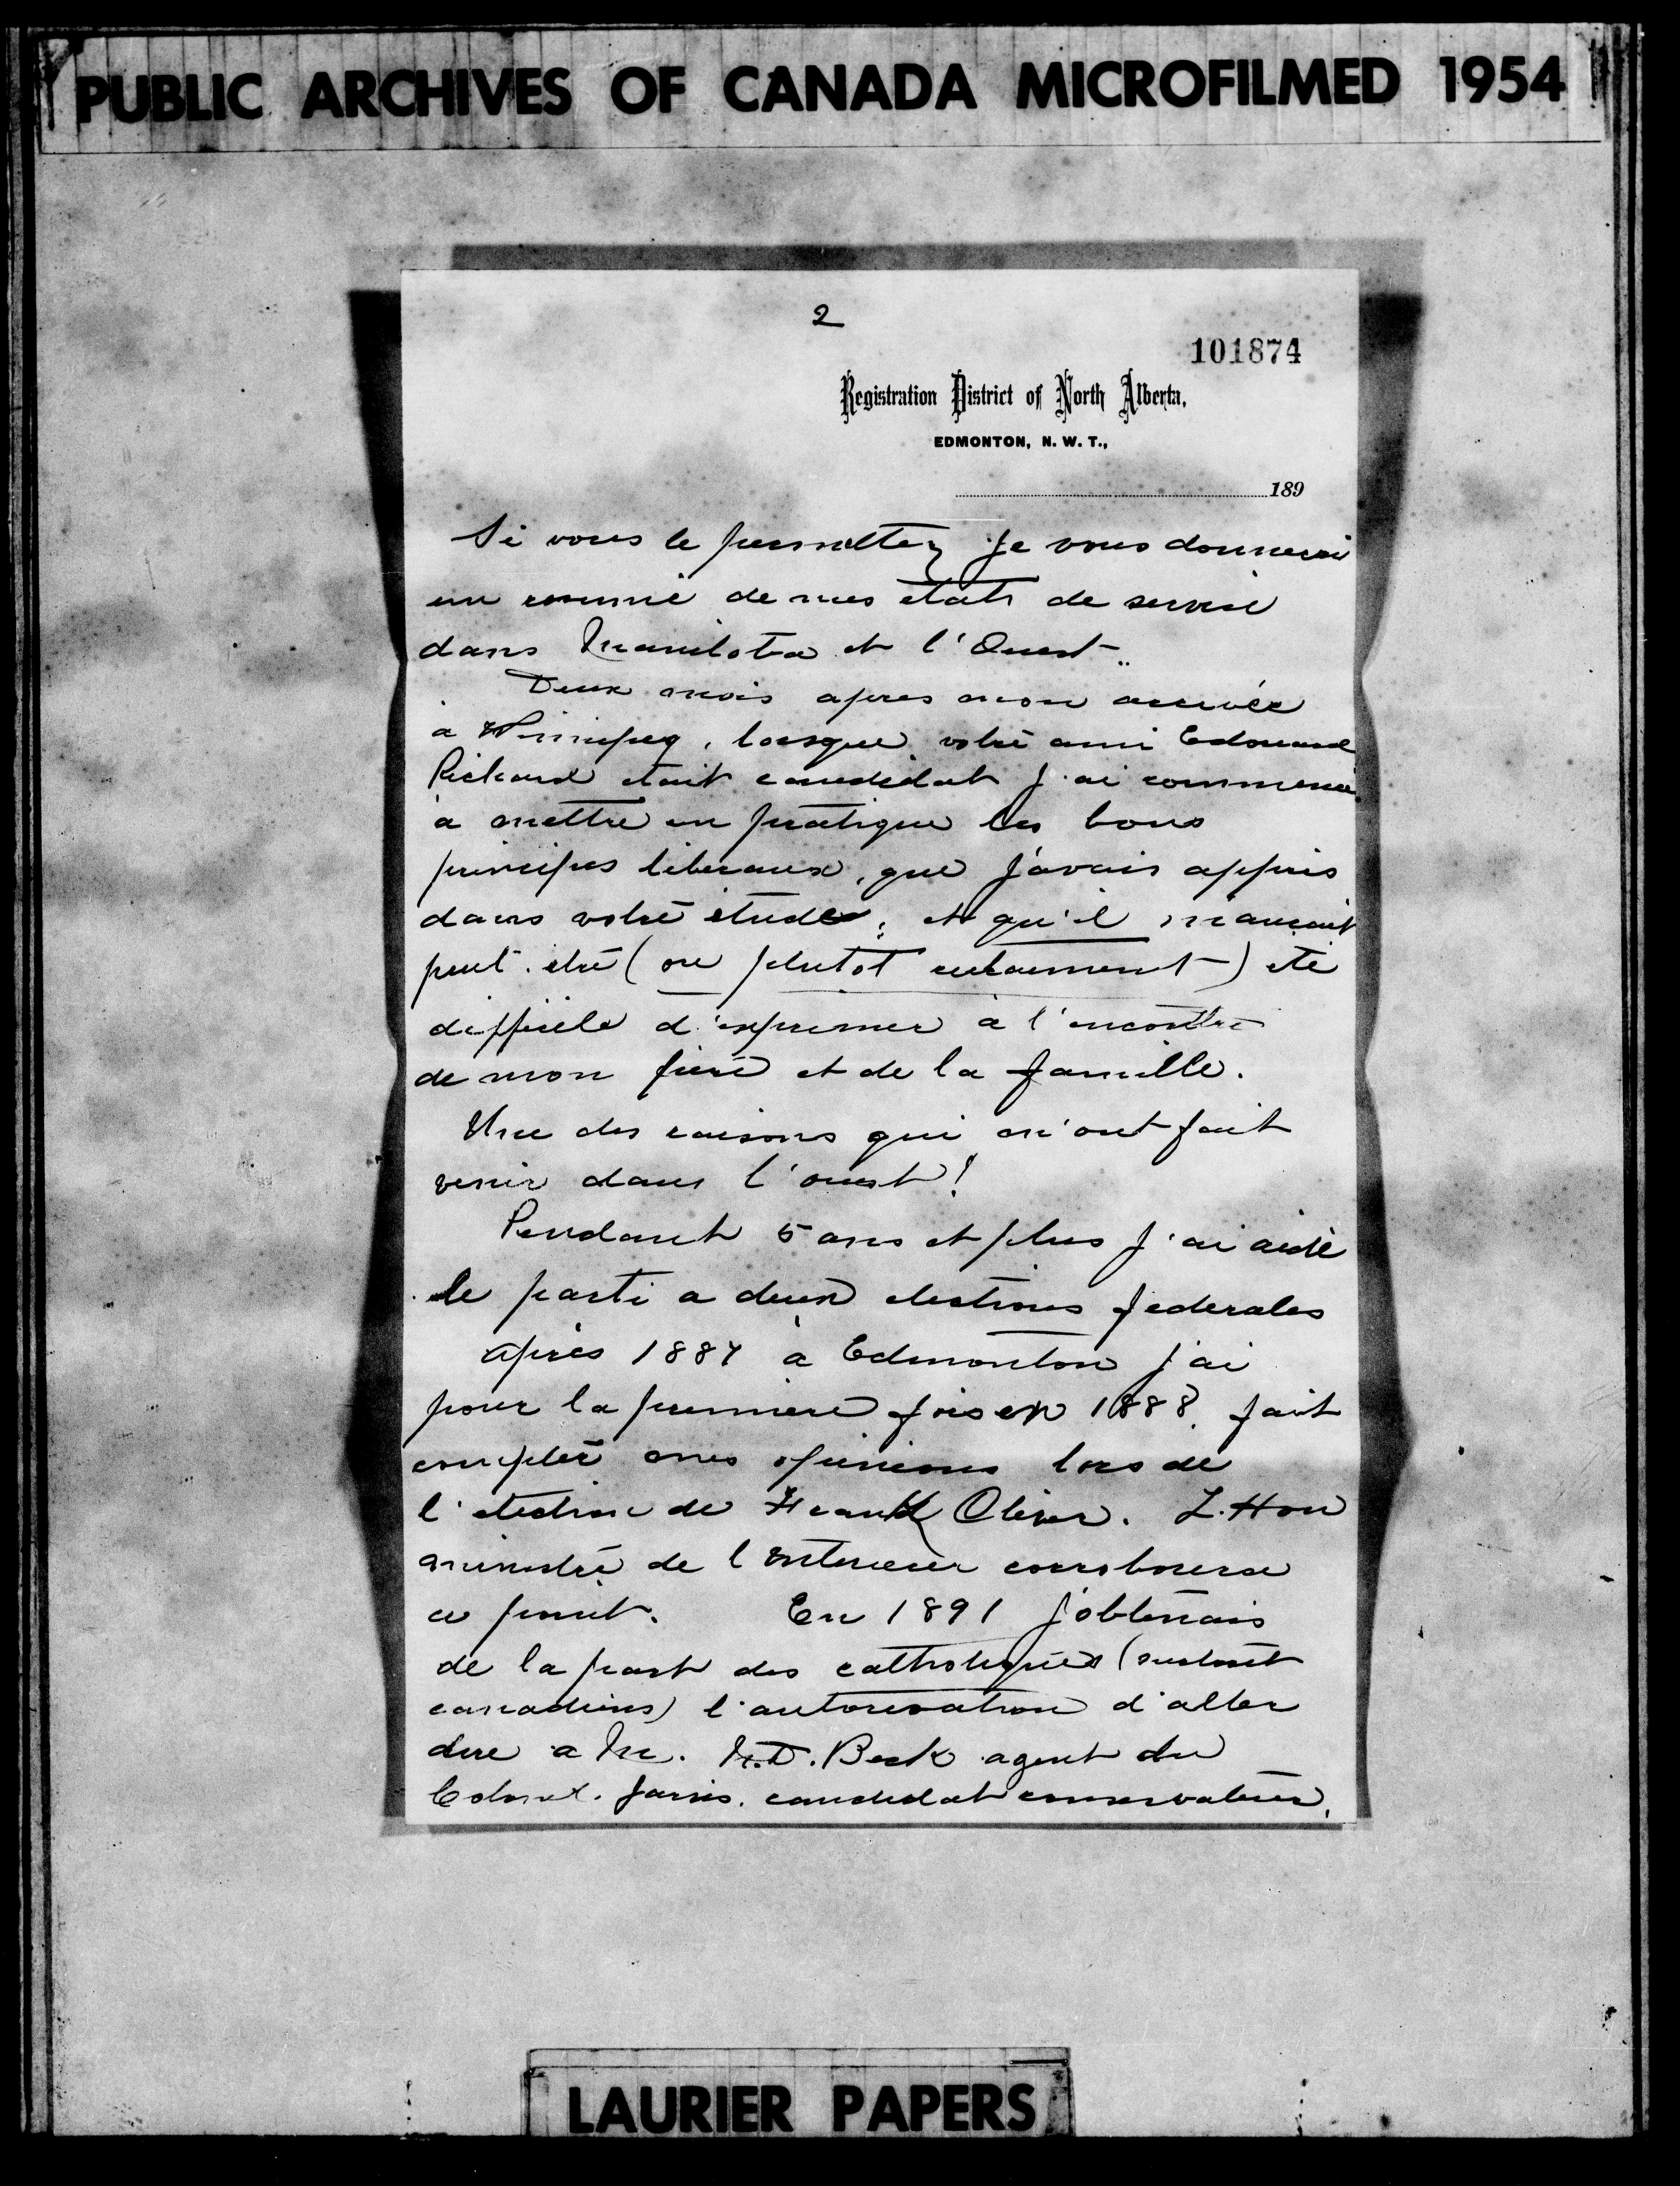 PUBLIC ARCHIVES OF CANADA MICROFILMED 1954
2
101874
Registration District of North Alberta,
EDMONTON, N. W. T.,
189
Si vous le permettez je vous donnerai
un resumé de mes etats de service
dans Manitoba et l'Ouest.
Deux mois apres mon arrivée
à Winnipeg, lorsque votre ami Edouard
Richard etait candidat j'ai commencé
a mettre en pratique les bons
principes liberaux, que j'avais appris
dans votre étude, et qu'il m'aurait
peut-etre (ou plutot certainement) ete
difficile d'exprimer à l'encontre
de mon père et de la famille.
Une des raisons qui m'ont fait
venir dans l'ouest!
Pendant 5 ans et plus j'ai aidé
le parti a deux elections federales
Après 1887 à Edmonton j'ai
pour la premiere fois en 1888 fait
compter mes opinions lors de
l'election de Frank Oliver. L. Hon
ministre de l'Interieur corroborera
ce point. En 1891 j'obtenais
de la part des catholiques (surtout
canadiens) l'autorisation d'aller
dire a Mr. N.D. Beck agent du
Colonel. candidat conservateur,
LAURIER PAPERS